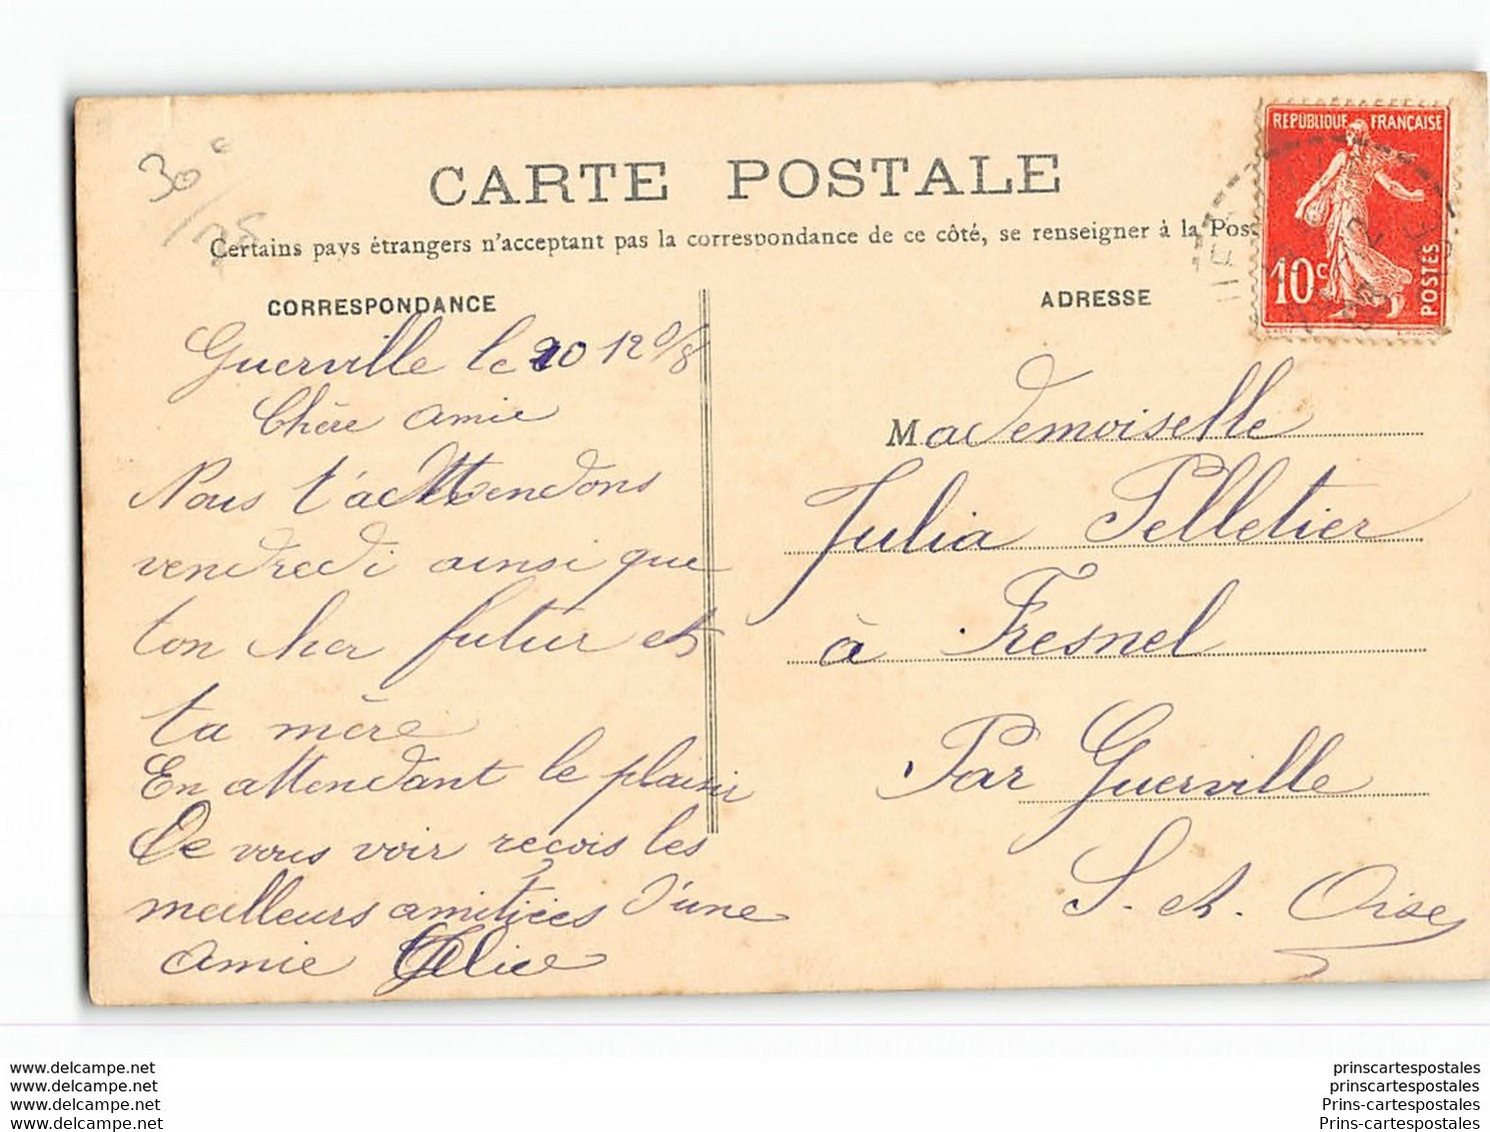 30 c
CARTE POSTALE
Certains pays étrangers n'acceptant pas la correspondance de ce côté, se renseigner à la Pos
REPUBLIQUE FRANÇAISE
10c
POSTES
CORRESPONDANCE
Guerville le 20 12 08
Chère amie
Nous t'attendons
vendredi ainsi que
ton cher futur et
ta mère
En attendant le plaisir
De vous voir reçois les
meilleurs amitiées d'une
amie
ADRESSE
Mademoiselle
Julia Pelletier
à Fresnel
Par Guerville
S. et. Oise
www.delcampe.net
www.delcampe.net
www.delcampe.net
www.delcampe.net
prinscartespostales
prinscartespostales
Prins-cartespostales
Prins-cartespostales